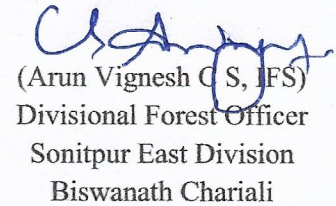 (Arun Vignesh C S, IFS)
Divisional Forest Officer
Sonitpur East Division
Biswanath Chariali